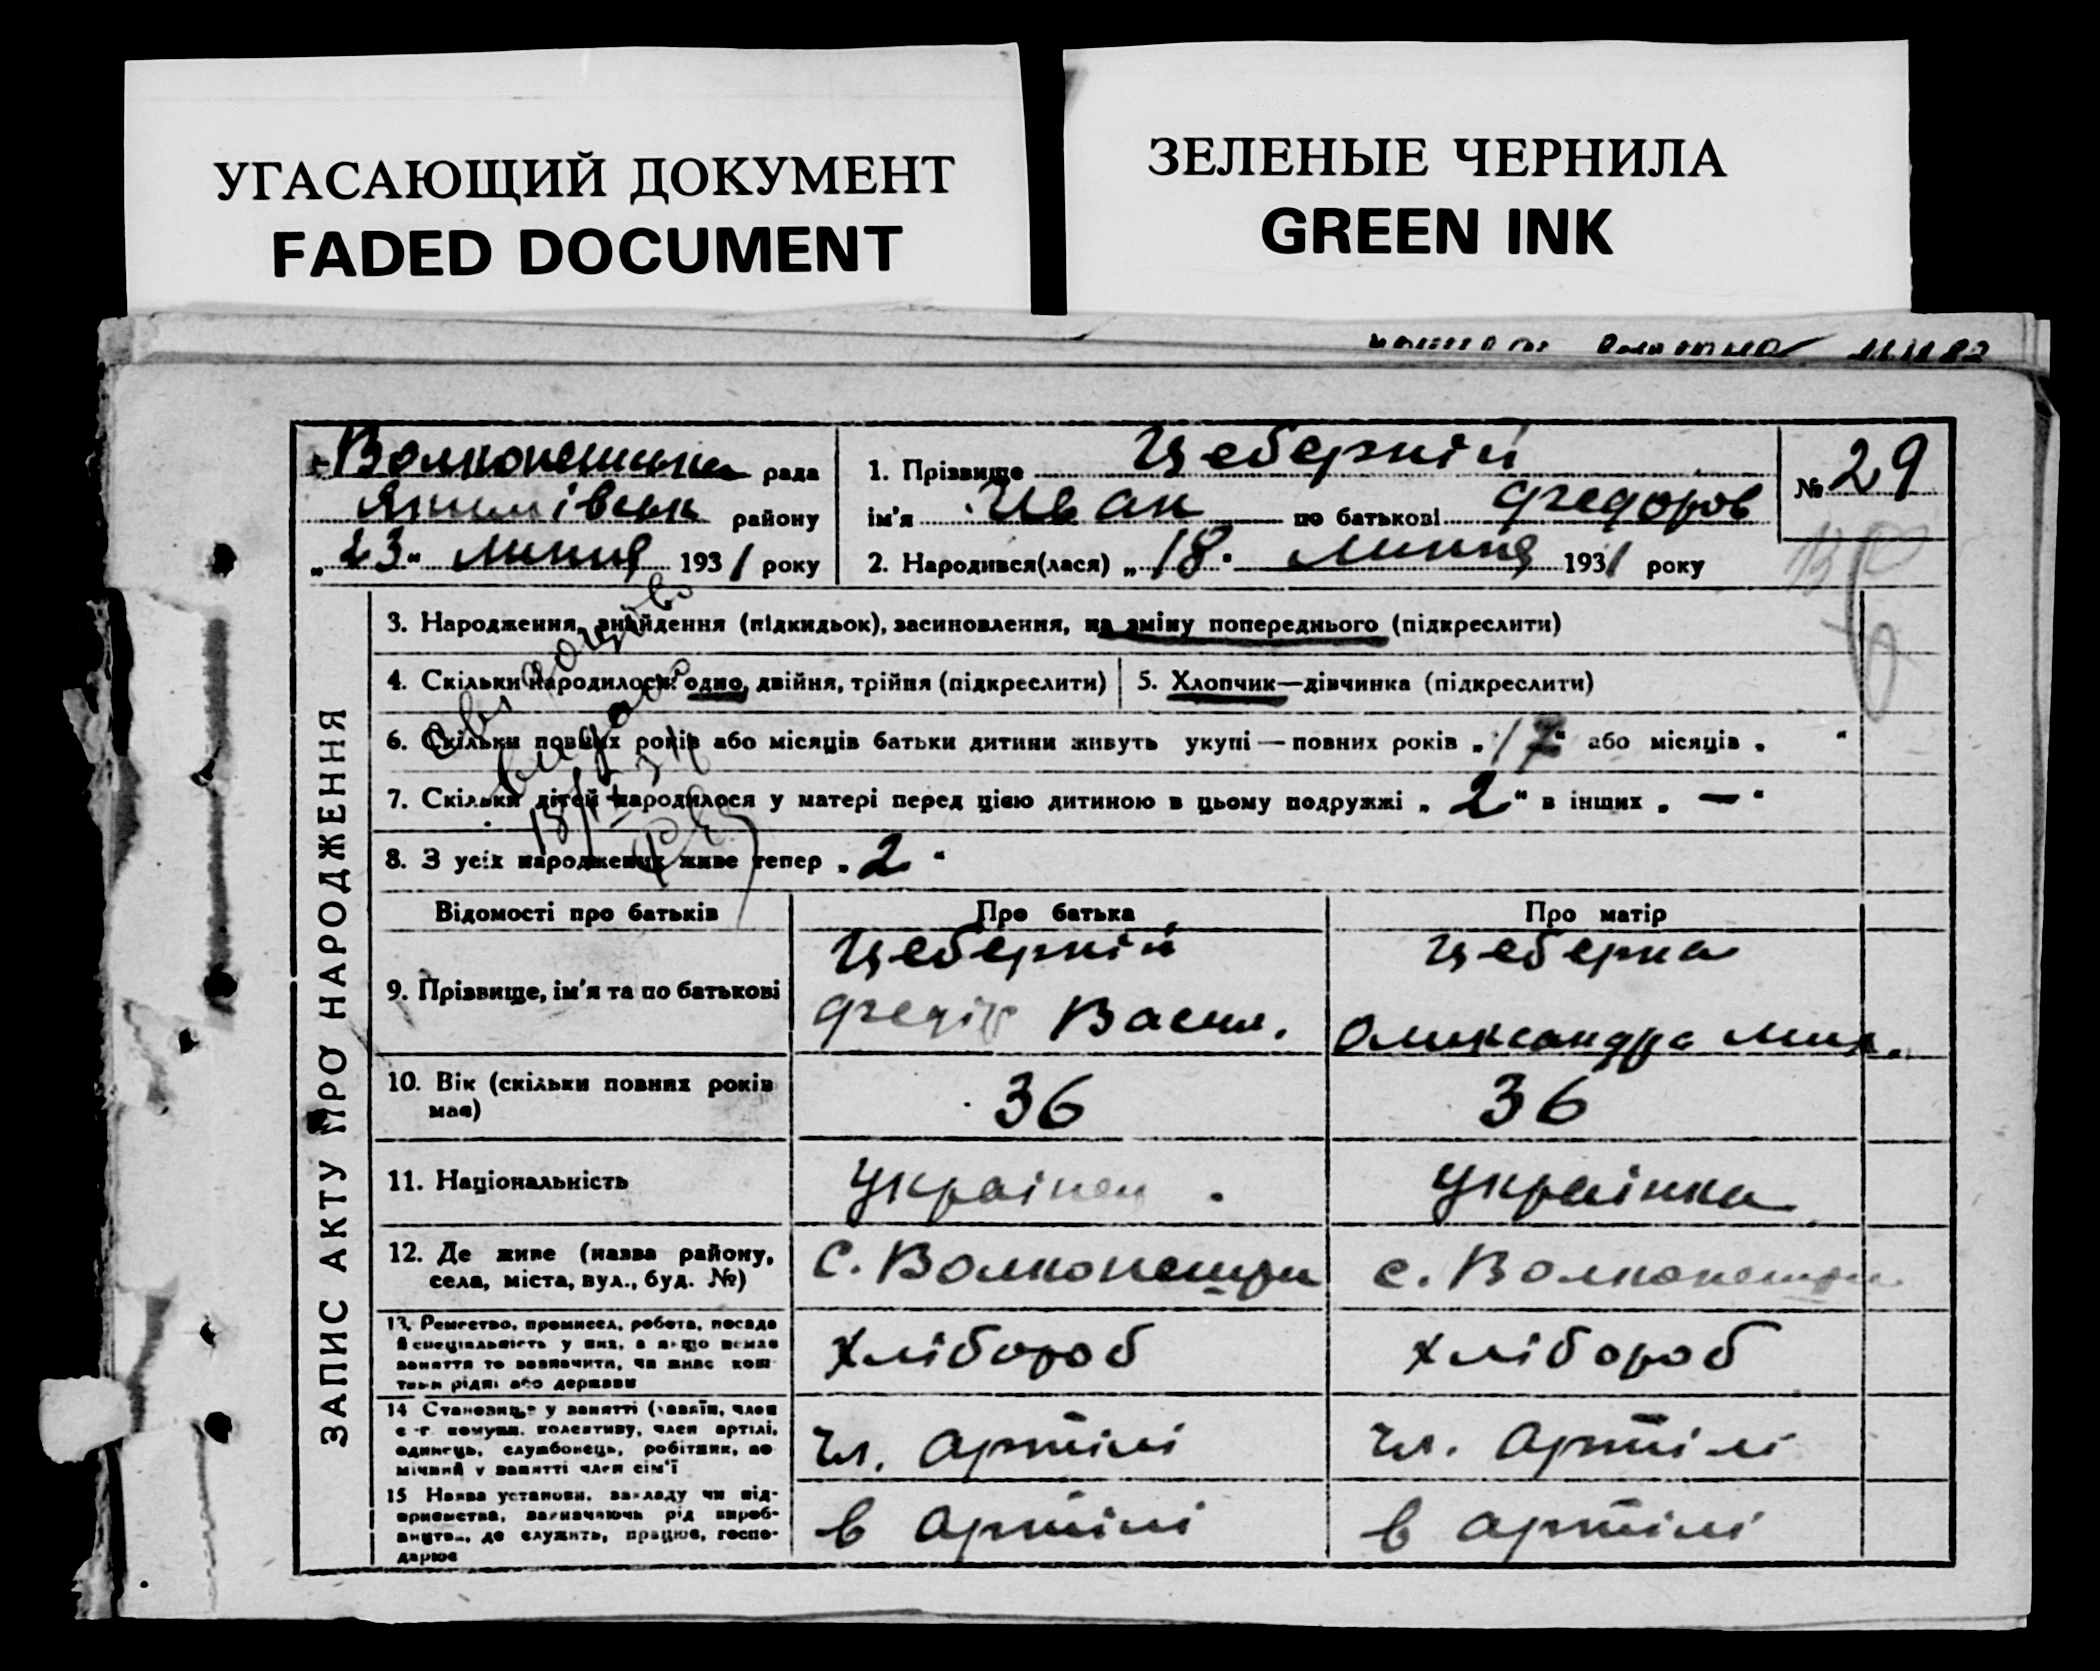 УГАСАЮЩИЙ ДОКУМЕНТ
FADED DOCUMENT
ЗЕЛЕНЫЕ ЧЕРНИЛА
GREEN INK
рада
району
„23“ липня 1931 року
1. Прізвище Цеберній
ім'я Иван по батькові Федоров
2. Народився(лася) „18“ липня 1931 року
№ 29
ЗАПИС АКТУ ПРО НАРОДЖЕННЯ
3. Народження, знайдення (підкидьок), засиновлення, на зміну попереднього (підкреслити)
4. Скільки народилося: одно, двійня, трійня (підкреслити)
5. Хлопчик—дівчинка (підкреслити)
6. Скільки повних років або місяців батьки дитини живуть укупі — повних років „ “ або місяців „ “
7. Скільки дітей народилося у матері перед цією дитиною в цьому подружжі „2“ в інших „—“
8. З усіх народжених живе тепер „2“
Свідоцтво
видано
Відомості про батьків
Про батька
Про матір
9. Прізвище, ім'я та по батькові
Цеберній
Федір Васил.
Цеберна
Олександра Мих.
10. Вік (скільки повних років має)
36
36
11. Національність
Українец
Українка
12. Де живе (назва району, села, міста, вул., буд. №)
С. Волконешти
с. Волконешти
13. Ремество, промисел, робота, посада й спеціяльність у них, а якщо немає заняття то зазначити, чи живе коштами рідні або держави
Хлібороб
Хлібороб
14 Становище у занятті (хазяїн, член с.-г. комуни, колективу, член артілі, одинець, службовець, робітник, помічний у занятті член сім'ї
чл. артілі
чл. артілі
15 Назва установи, закладу чи підприємства, зазначаючи рід виробництва, де служить, працює, господарює
в артілі
в артілі